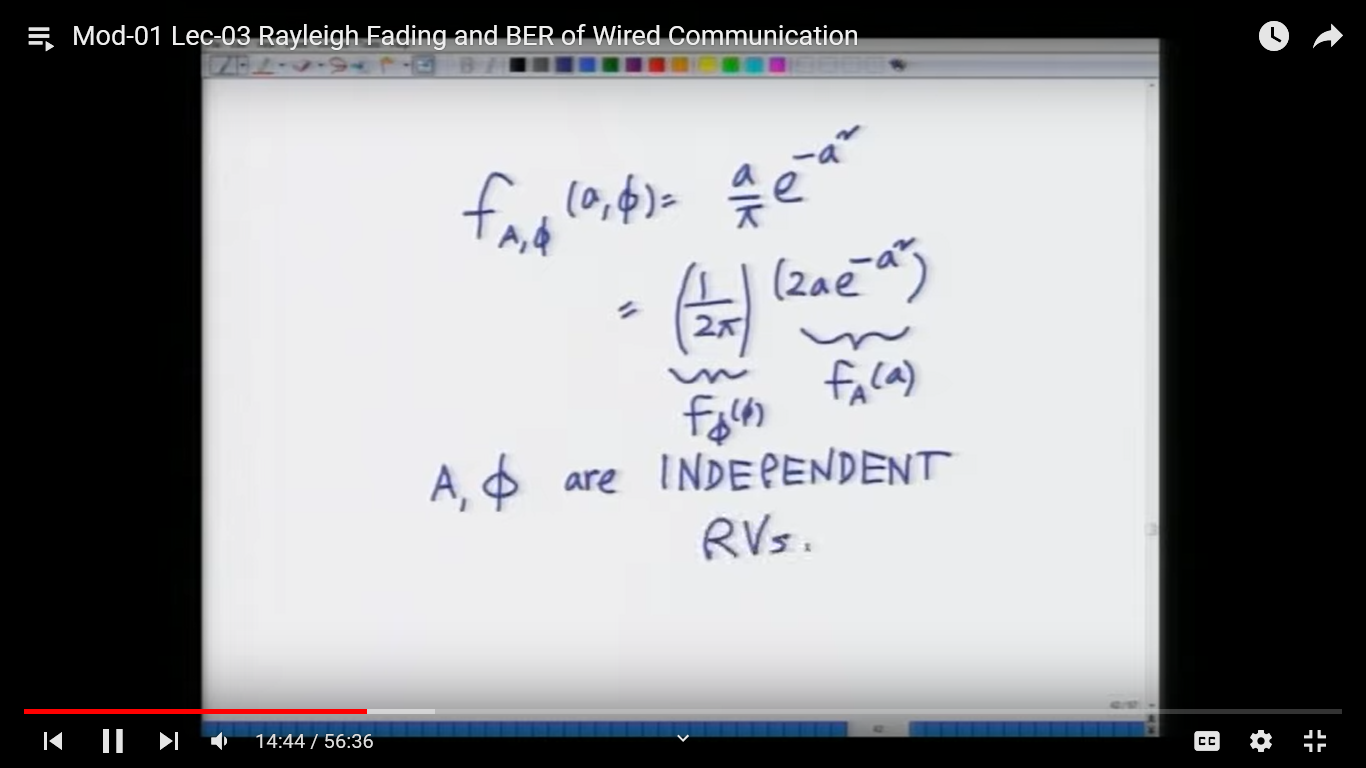 Mod-01 Lec-03 Rayleigh Fading and BER of Wired Communication
f_{A,ϕ}(a,ϕ) = a/π e^{-a²}
= (1/2π) (2ae^{-a²})
f_ϕ(ϕ) f_A(a)
A, ϕ are INDEPENDENT
RVs.
14:44 / 56:36
CC